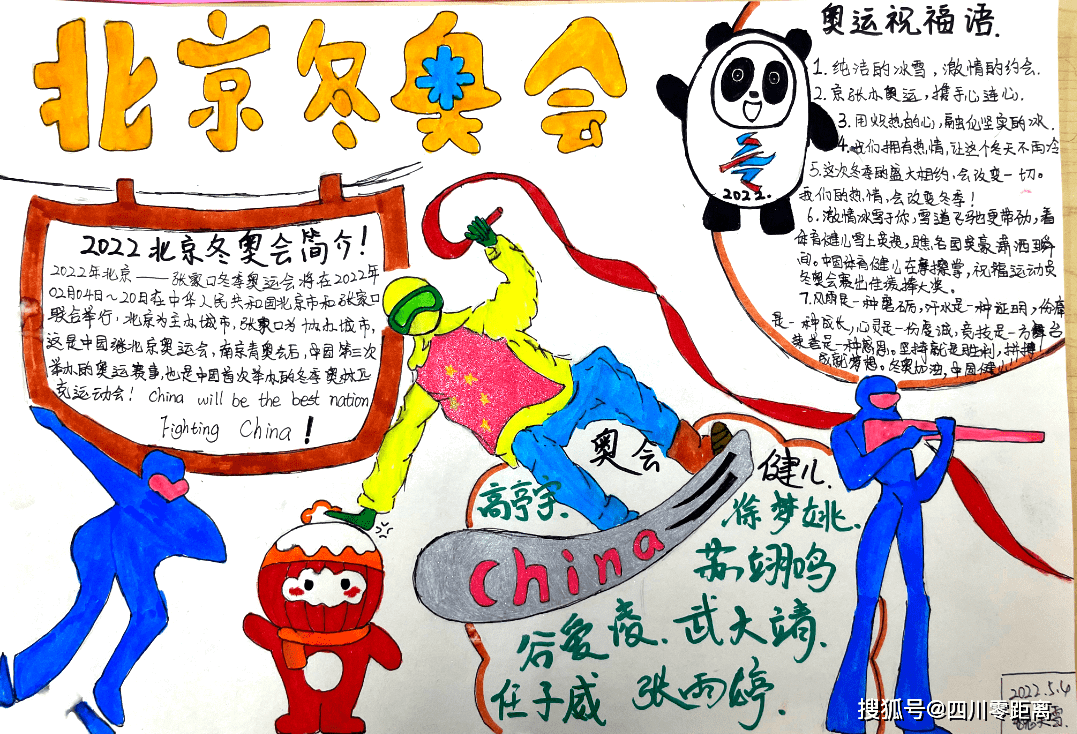 北京冬奥会
奥运祝福语.
1. 纯洁的冰雪，激情的约会.
2. 京张办奥运，携手心连心.
3. 用炽热的心，融化坚实的冰.
4. 我们拥有热情，让这个冬天不再冷
5. 这次冬季的盛大相约，会改变一切。
我们的热情，会改变冬季！
6. 激情冰雪于你，雪道飞驰更带劲，看
体育健儿雪上英姿，瞧各国英豪潇洒瞬
间。中国体育健儿在摩擦掌，祝福运动员
冬奥会赛出佳绩捧大奖。
7. 风雨是一种磨砺，汗水是一种证明，份
是一种成长，心灵是一份虔诚，竞技是一方舞台
荣誉是一种感恩。坚持就是胜利，拼搏
成就梦想。冬奥加油，中国健儿！
2022.
2022北京冬奥会简介！
2022年北京——张家口冬季奥运会将在2022年
02月04日~20日在中华人民共和国北京市和张家口
联合举行，北京为主办城市，张家口为协办城市，
这是中国继北京奥运会，南京青奥会后，中国第三次
举办的奥运赛事，也是中国首次举办的冬季奥林匹
克运动会！China will be the best nation
Fighting China！
奥会
健儿.
高亭宇.
徐梦桃.
苏翊鸣
china
谷爱凌.
武大靖.
任子威
张雨婷.
2022.5.4
搜狐号@四川零距离